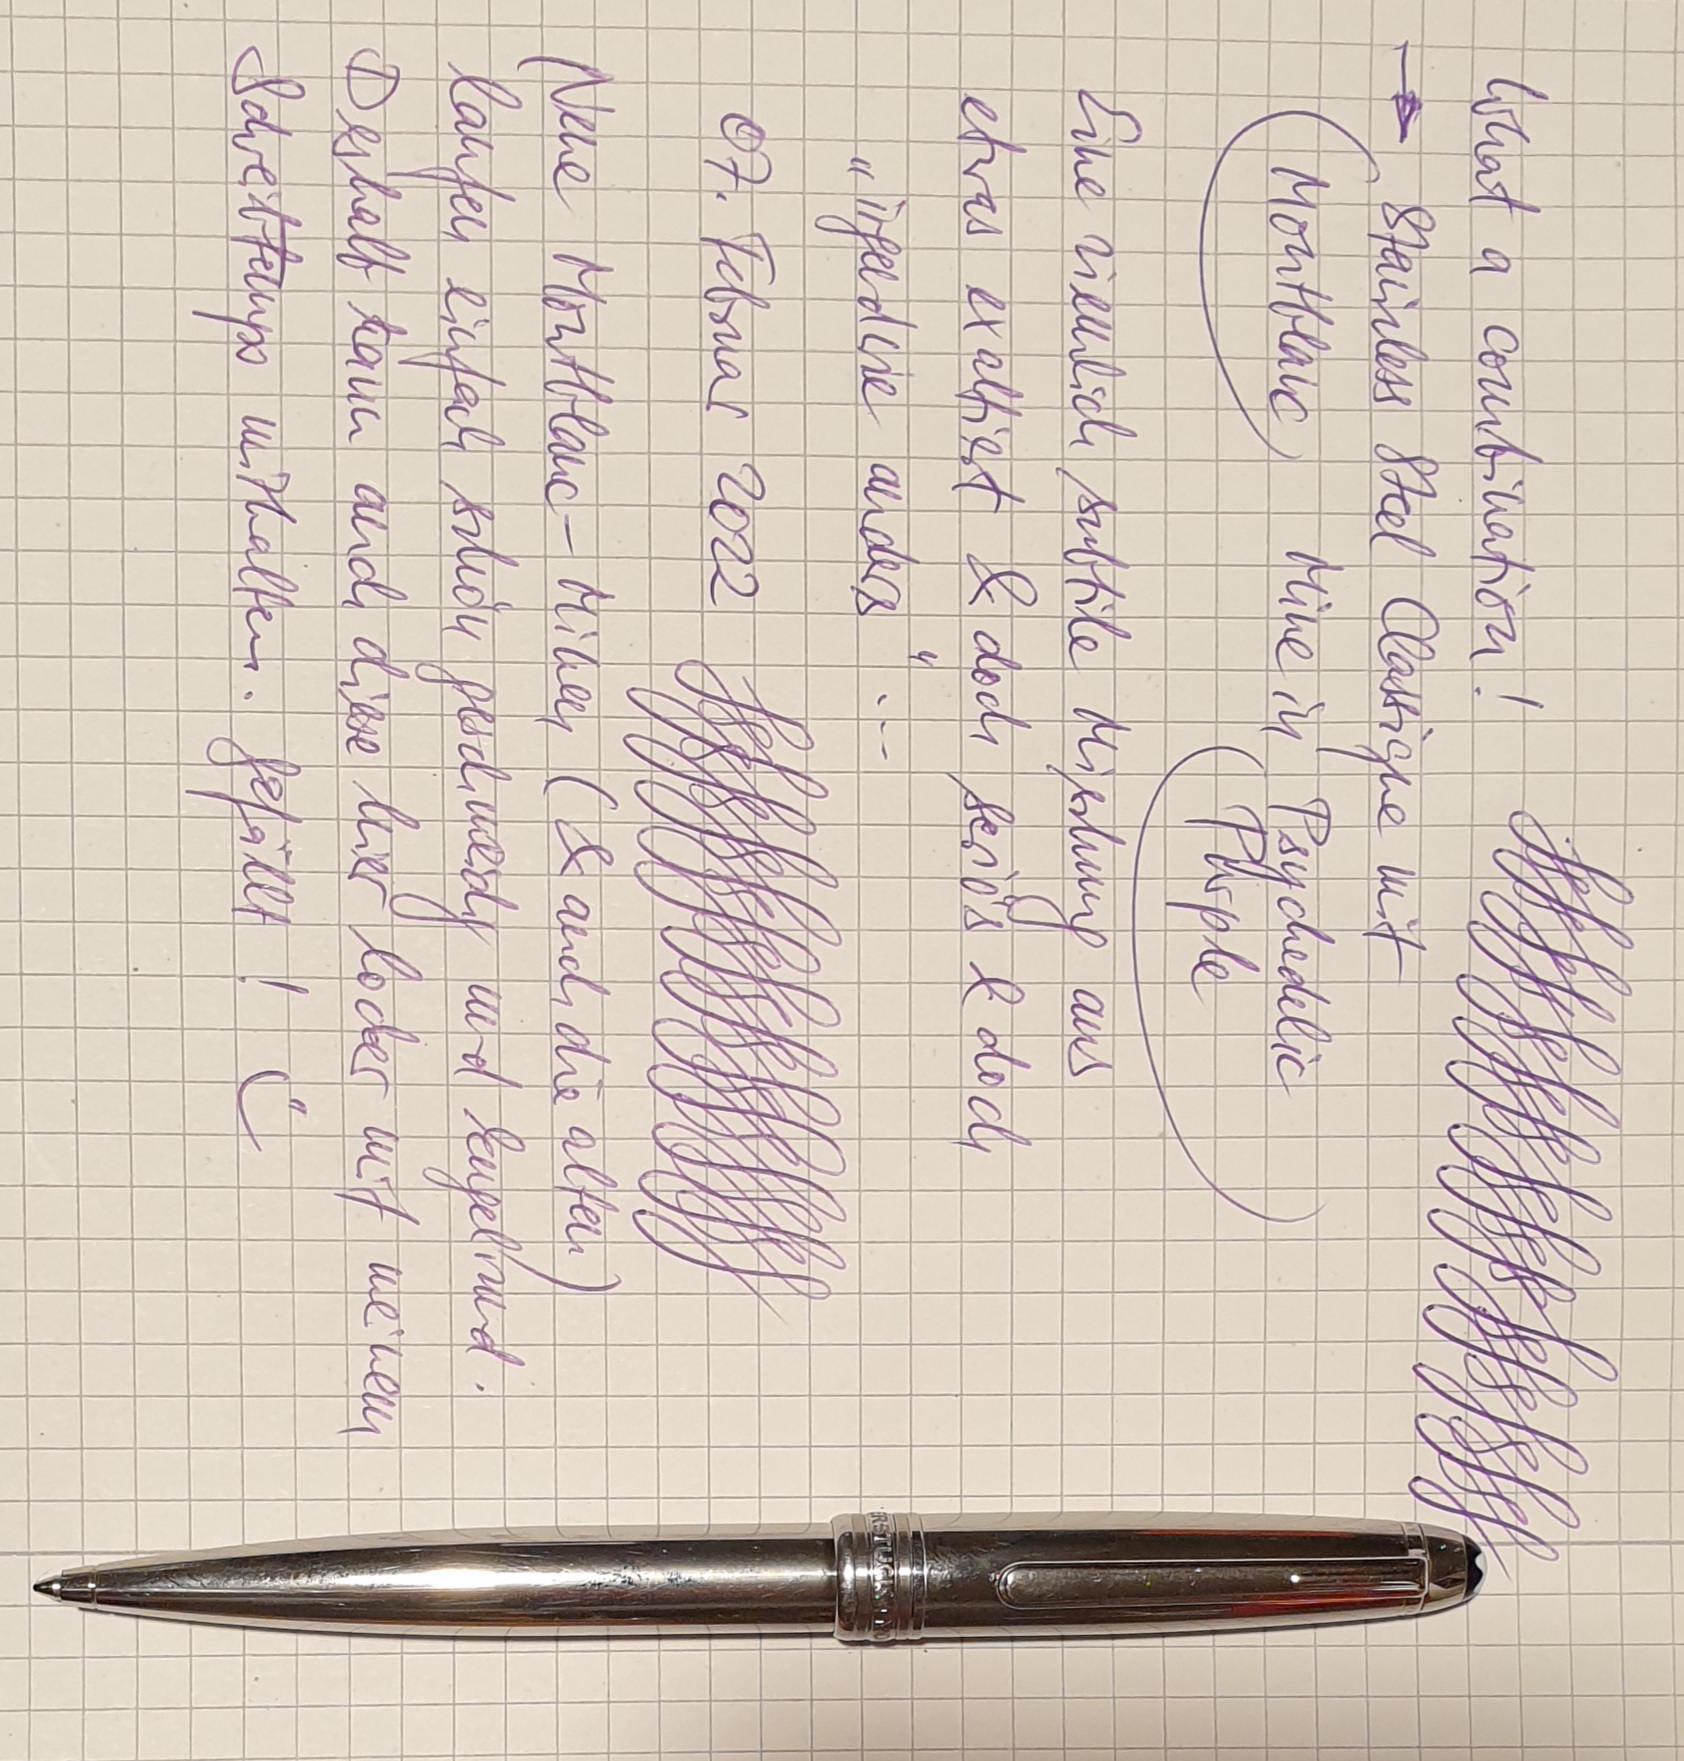 What a combination!
→ Stainless Steel Classique mit
(Montblanc) Mine in Psychedelic
Purple
Eine ziemlich subtile Mischung aus
etwas exaltiert & doch seriös & doch
"irgendwie anders" ...
07. Februar 2022
(Neue Montblanc-Minen (& auch die alten)
laufen einfach schön geschmeidig und kugelrund.
Deshalb kann auch diese hier locker mit meinem
Schreibtempo mithalten. Gefällt!